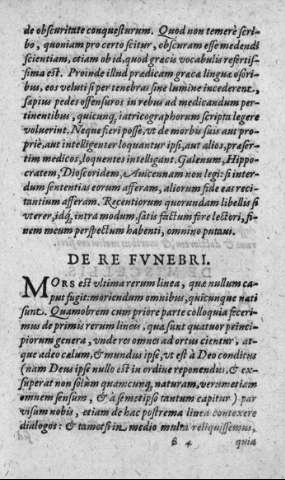 de obscuritate conquesturum. Quod non temerè scri-
bo, quoniam pro certo scitur, obscuram esse medendi
scientiam, etiam ob id, quod græcis vocabulis refertis-
sima est. Proinde illud prædicam græca lingua osori-
bus, eos veluti si per tenebras sine lumine incederent,
sæpius pedes offensuros in rebus ad medicandum per-
tinentibus, quicunq; iatricographorum scripta legere
voluerint. Neque fieri posse, vt de morbis suis aut pro-
prie, aut intelligenter loquantur ipsi, aut alios, præser-
tim medicos, loquentes intelligant. Galenum, Hippo-
cratem, Dioscoridem, Auicennam non legi: si inter-
dum sententias eorum afferam, aliorum fide eas reci-
tantium afferam. Recentiorum quorundam libellis si
vterer, idq; intra modum, satis factum fore lectori, fi-
nem meum perspectum habenti, omnino putaui.
DE RE FVNEBRI.
MORS est vltima rerum linea, quæ nullum ca-
put fugit: moriendum omnibus, quicunque nati
sunt. Quamobrem cum priore parte colloquia fecerí
mus de primis rerum lineis, quæ sunt quatuor princi-
piorum genera, vnde res omnes ad ortus cientur, at-
que adeo cælum, & mundus ipse, vt est à Deo conditus
(nam Deus ipse nullo est in ordine reponendus, & ex-
superat non solùm quamcunq; naturam, verumetiam
omnem sensum, & à semetipso tantum capitur) par
visum nobis, etiam de hac postrema linea contexere
dialogos: & tametsi in medio multa reliquissemus,
B 4 quia